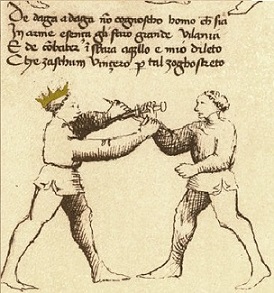 De daga a daga nõ cognoscho homo ch sia
In arme e senza gli faro grande vilania
E de cõbater ĩ sbara aq̃llo e mio dileto
Che zaschum Vinzero p tal zogho streto